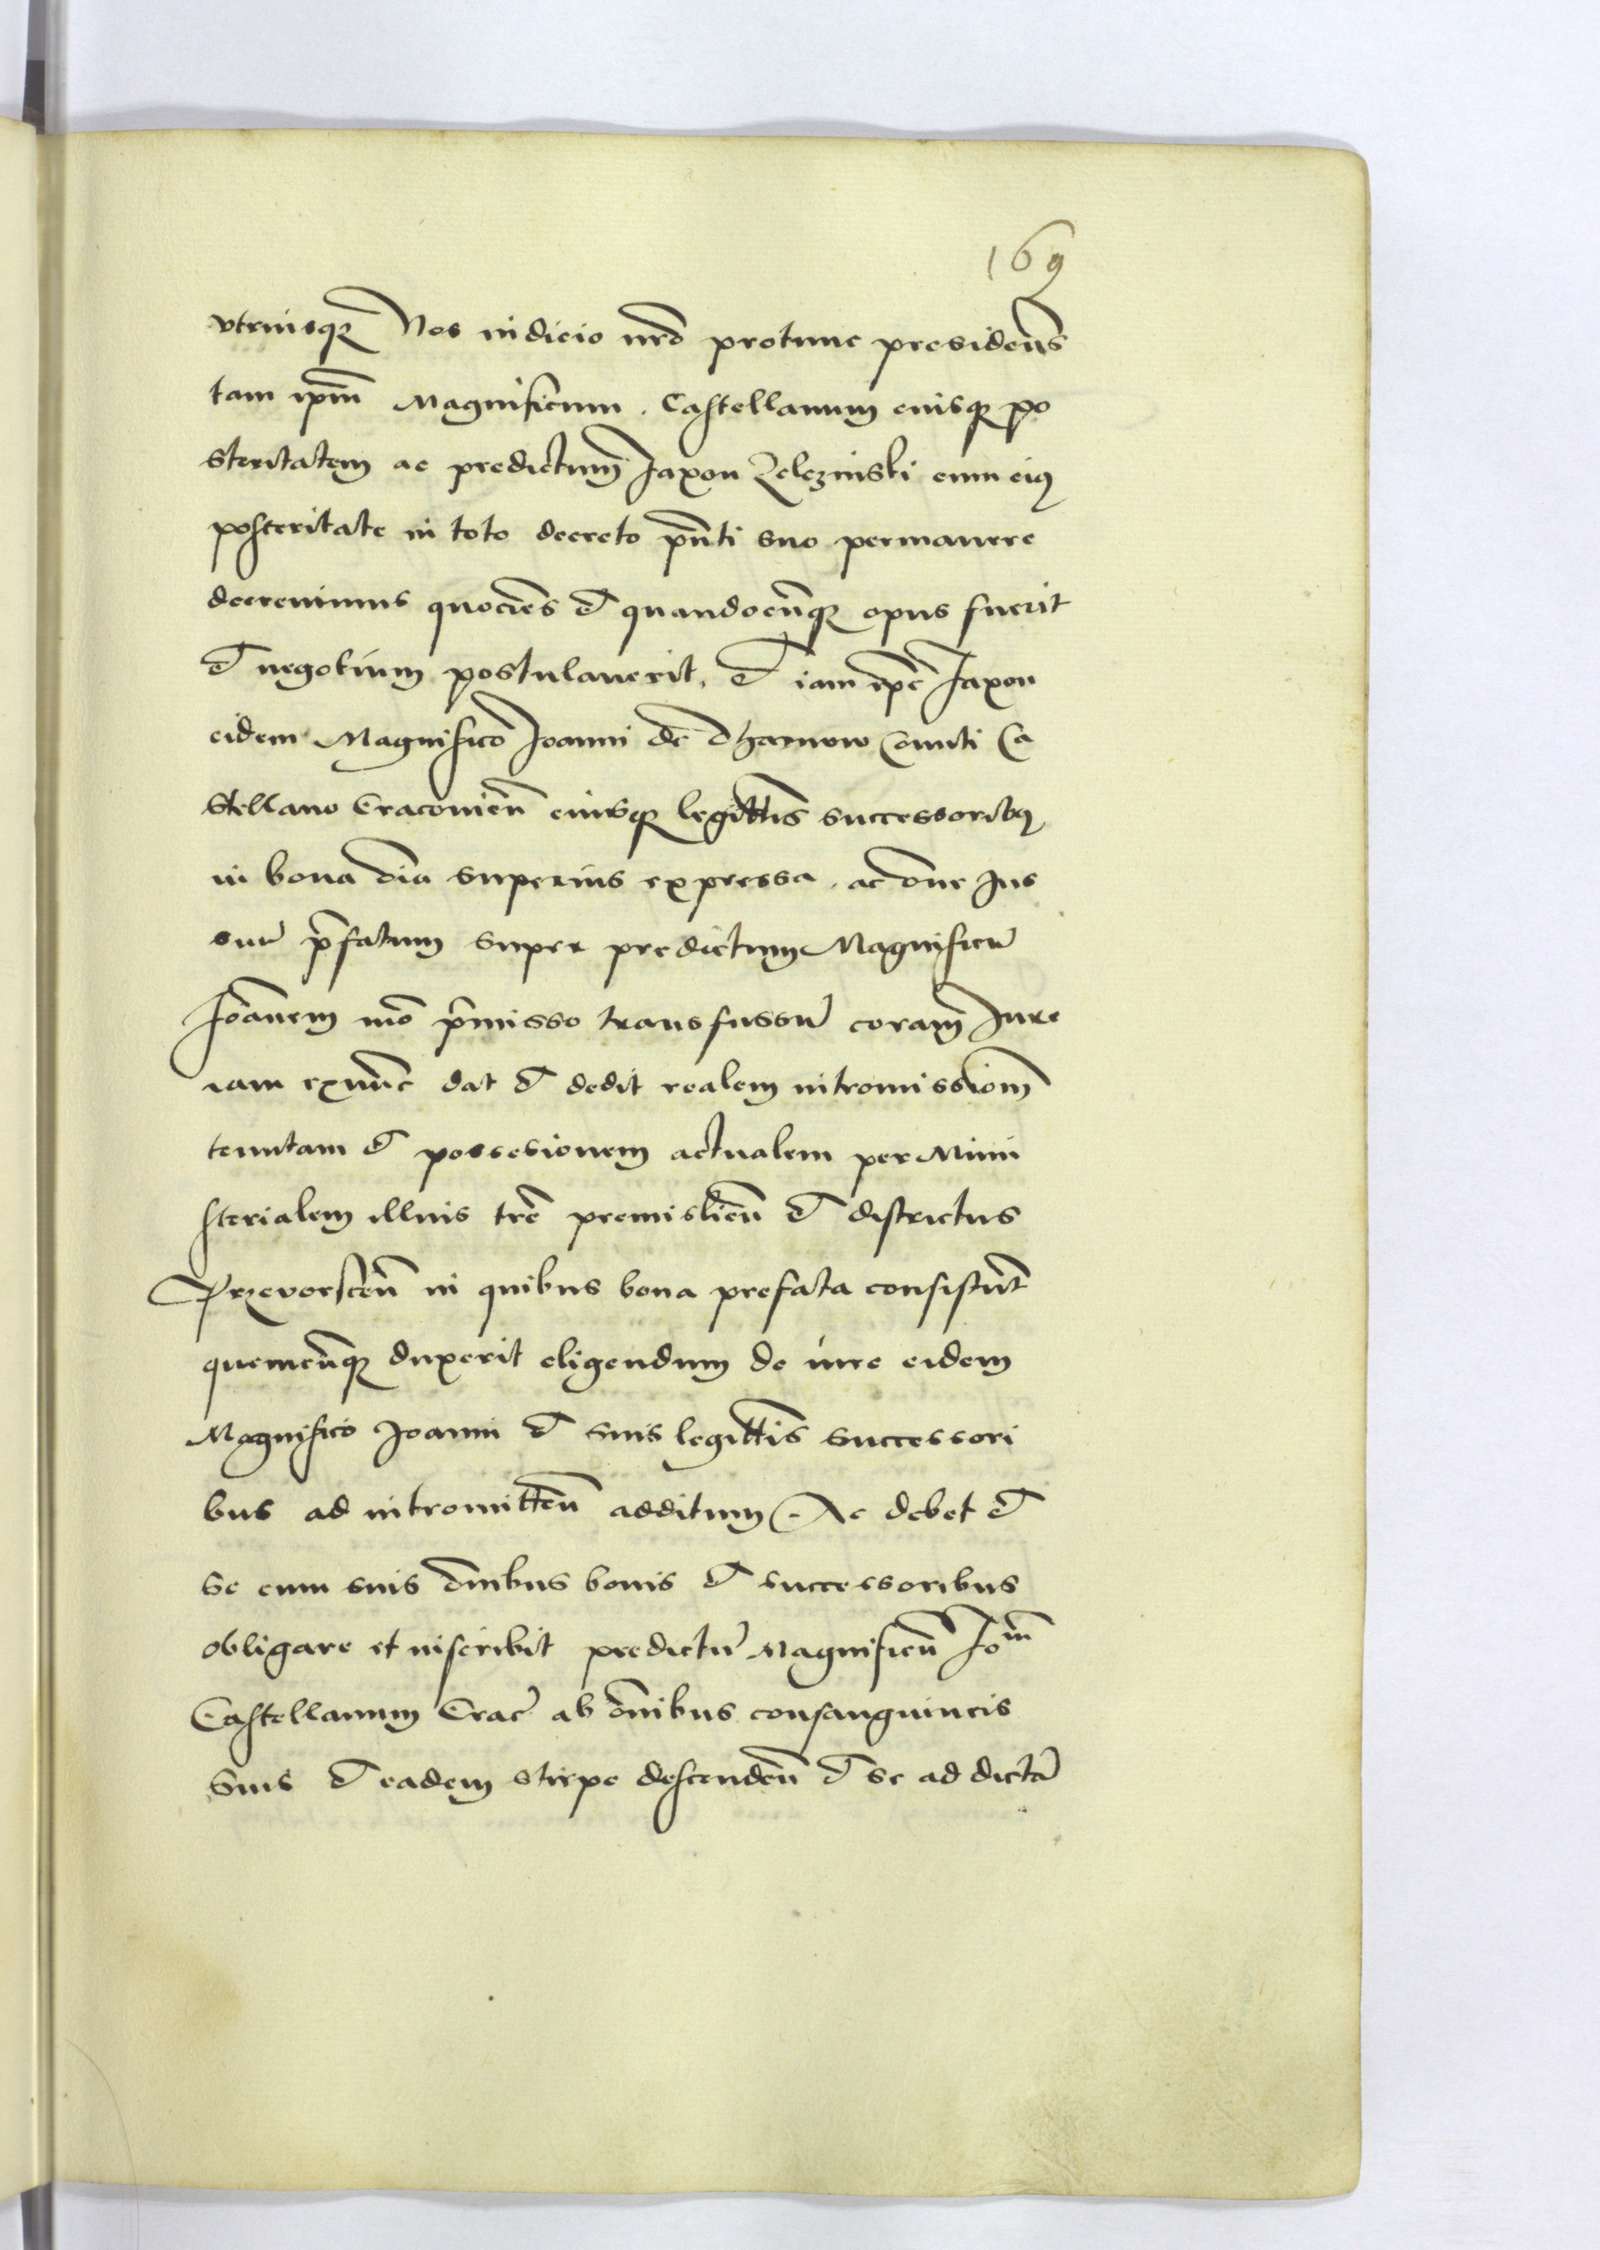 169
vtriusq₃ Nos iudicio nr̄o protunc presidens̄
tam ip̄m Magnificum . Castellanum eiusq₃ po
steritatem ac predictum Jaxon Zelezinski cum eiꝯ
posteritate in toto decreto pn̄ti suo permanere
decreuimus quociēs et quandocūq₃ opus fuerit
et negotium postulauerit. et iam ip̄e Jaxon
eidem Magnifico Joanni de Tharnow Comiti Ca
stellano Cracouien̄ eiusq₃ legittīs successoribꝯ
in bona oīa superius expressa . ac om̄e Jus
suū p̄fatum super predictum Magnificū
Joānem mō p̄misso transfussū coram Jure
iam exnūc dat et dedit realem intromissionē
tenutam et possesionem actualem per Mini
sterialem illius tr̄e premislien̄ et districtus
Przevorscen̄ in quibus bona prefata consistūt
quemcūq₃ duxerit eligendum de iure eidem
Magnifico Joanni et suis legittīs successori
bus ad intromitten̄ additum . Ac debet et
se cum suis om̄ibus bonis et successoribus
obligare et inscribit predictū Magnificū Jo^m
Castellanum Crac̄ ab om̄ibus consanguineis
suis et eadem stirpe descenden̄ et se ad dictā